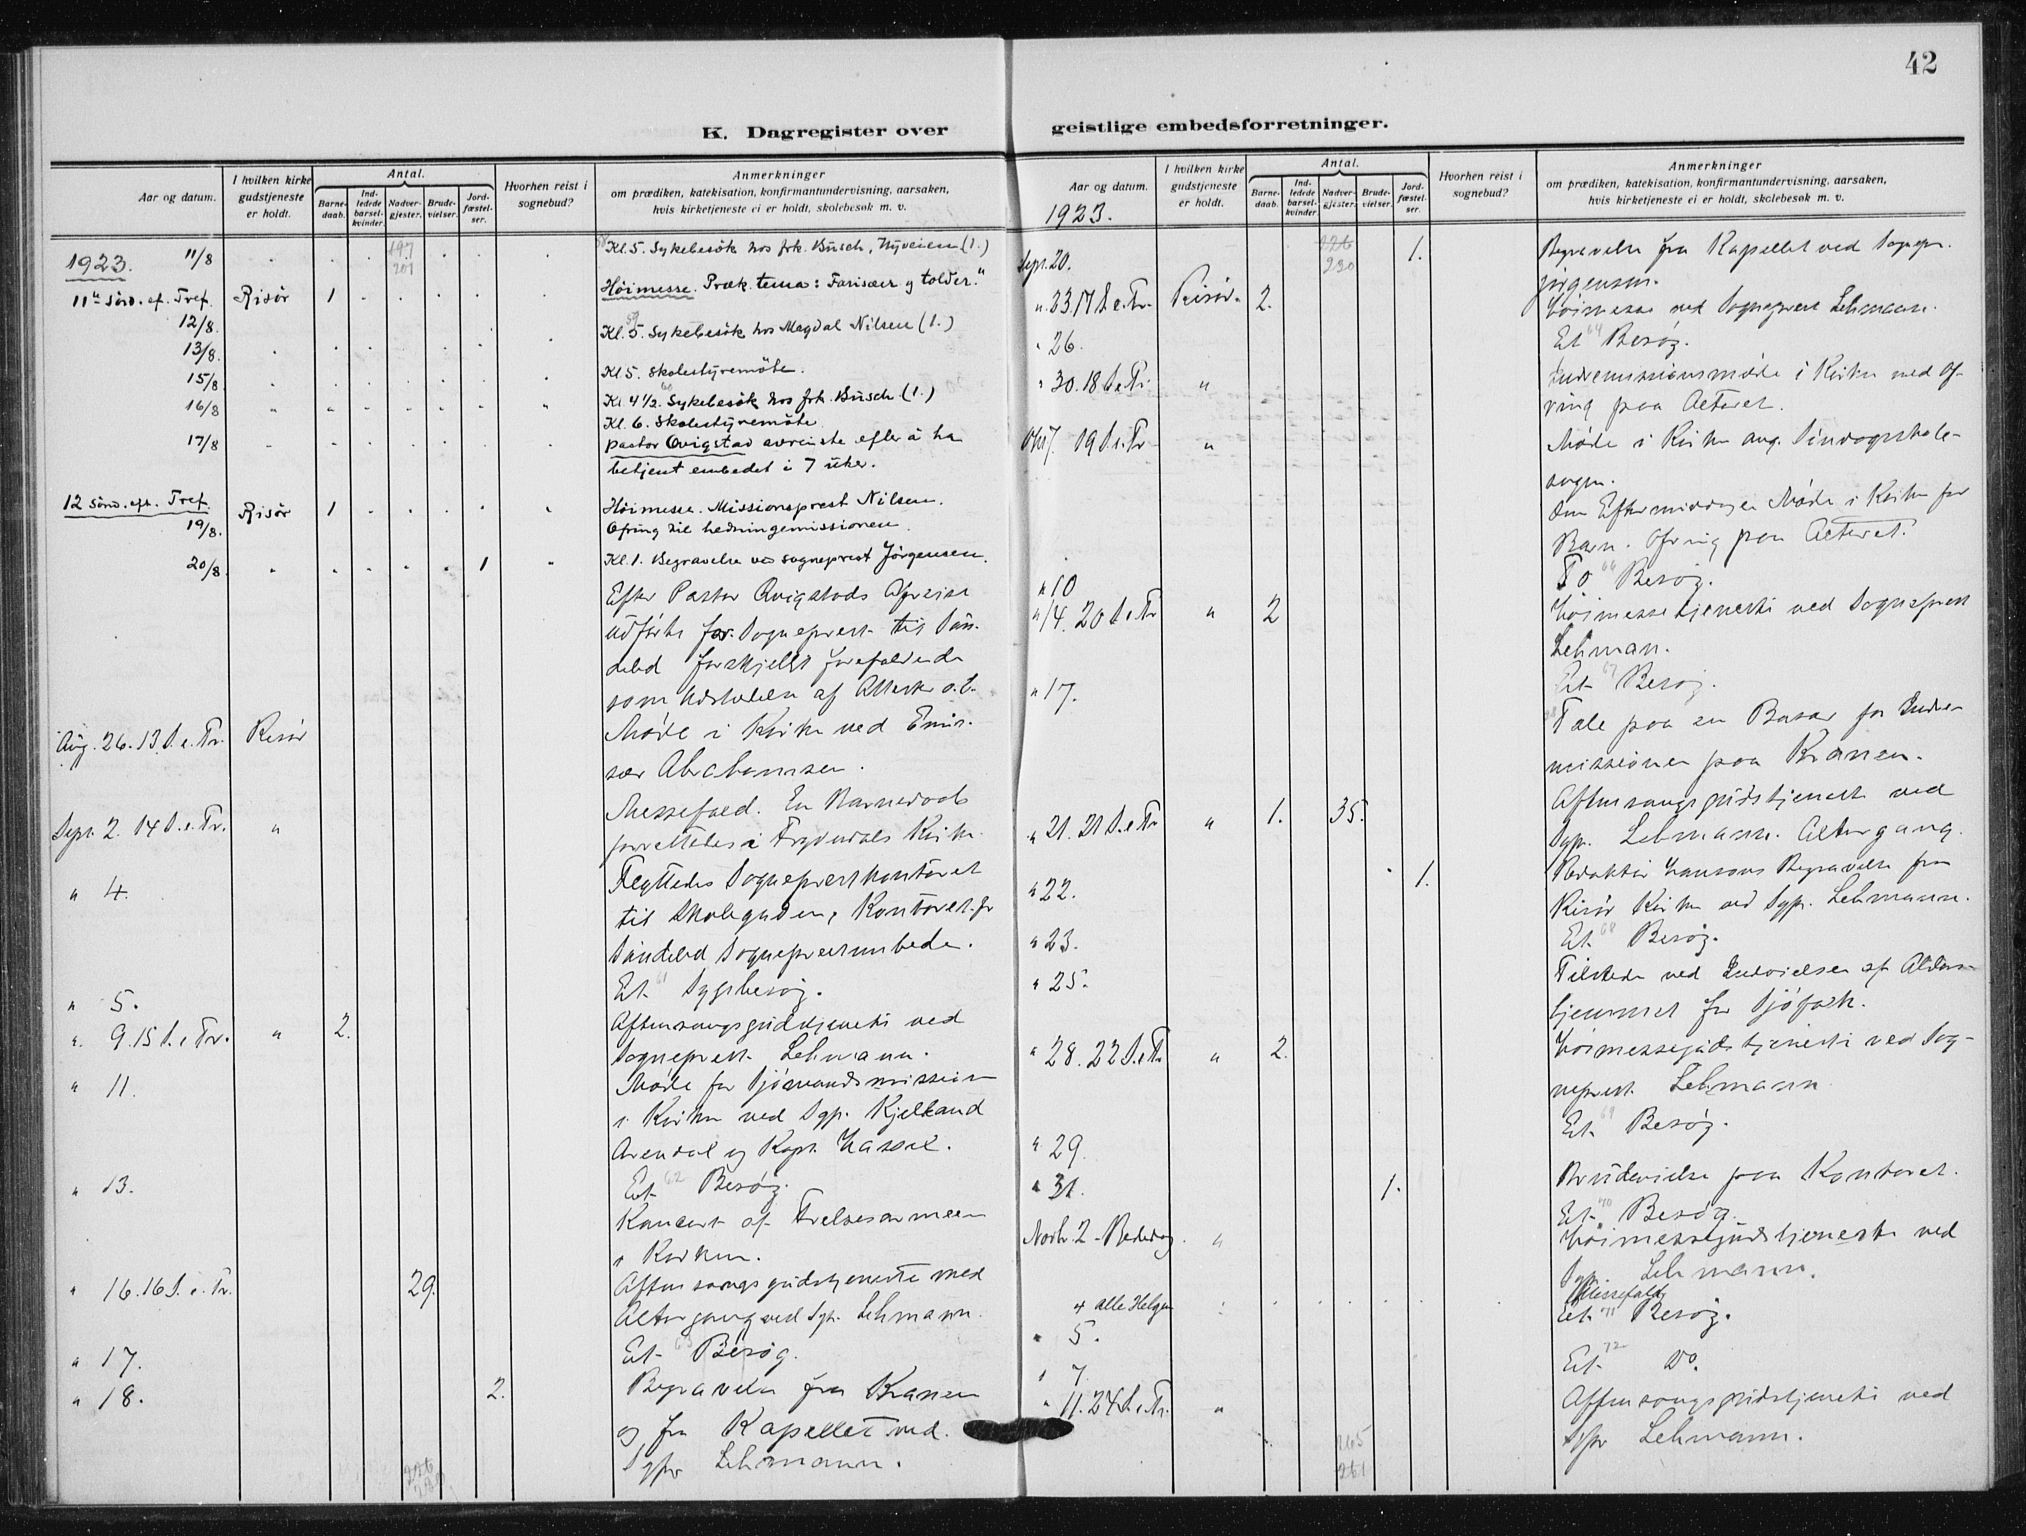 42
K. Dagregister over
geistlige embedsforretninger.
Aar og datum.
I hvilken kirke gudstjeneste er holdt.
Antal.
Barnedaab.
Indledede barselkvinder.
Nadvergjester.
Brudevielser.
Jordfæstelser.
Hvorhen reist i sognebud?
Anmerkninger
om prædiken, katekisation, konfirmantundervisning, aarsaken,
hvis kirketjeneste ei er holdt, skolebesøk m. v.
1923. 11/8 197 201 Kl. 5. Sykebesök hos frk. Busch, Nyveien (1.)
11te sönd. ef. Tref. Risör 1 Höimesse. Præk. tema: Farisæer og tolder."
12/8. 59 Kl. 5. Sykebesök hos Magdal Nilsen (1.)
13/8
15/8 Kl 5. Skolestyremöte.
16/8 60 Kl 4 1/2. Sykebesök hos frk. Busch (1.)
Kl. 6. Skolestyremöte
17/8 Pastor Qvigstad avreiste efter å ha
betjent embedet i 7 uker.
12 sönd. eft. Tref. Risör 1 Höimesse. Missionsprest Nilsen.
19/8. Ofring til hedningemissionen.
20/8. 1 Kl. 1. Begravelse ved sogneprest Jörgensen.
Efter Pastor Qvigstads Afreise
udförte for. Sogneprest til Sön-
deled forskjellig forefaldende
som Udstedelse af Attester o.l.
Aug. 26. 13 S. e. Tr. Risör Møde i Kirken ved Emis-
sær Abrahamsen.
Sept. 2. 14 S. e. Tr. " Messefald. En Barnedaab
forrettedes i Frydendals Kirke.
" 4. Flyttedes Sogneprestkontoret
til Skolegaden, Kontoret for
Söndeled Sogneprestembede.
" 5. Et 61 Sygebesøg.
" 9. 15 S. e Tr. " 2. Aftensangsgudstjeneste ved
Sogneprest Lehmann.
" 11. Møde for Sjömandsmission
i Kirken ved Sgp. Kjelland
Arendal og Kapt. Hassel.
" 13. Et 62 Besøg.
Koncert af Frelsesarmeen
i Kirken.
" 16. 16 S. e. Tr. 29. Aftensangsgudstjeneste med
Altergang ved Sgpr. Lehmann.
" 17. Et 63 Besøg.
" 18. 2. Begravelse fra Kranen
og fra Kapellet ved
Sgpr Lehmann.
226 230
Aar og datum.
1923.
I hvilken kirke gudstjeneste er holdt.
Antal.
Barnedaab.
Indledede barselkvinder.
Nadvergjester.
Brudevielser.
Jordfæstelser.
Hvorhen reist i sognebud?
Anmerkninger
om prædiken, katekisation, konfirmantundervisning, aarsaken,
hvis kirketjeneste ei er holdt, skolebesøk m. v.
Sept. 20. 226 230 1. Begravelse fra Kapellet ved Sognepr.
Jörgensen.
" 23. 17 S. e. Tr. Risör. 2. Höimesse ved Sogneprest Lehmann.
" 26. Et 64 Besøg.
" 30. 18 S. e. Tr. " Indremissionsmøde i Kirken med Of-
ring paa Alteret.
Okt 7. 19 S. e. Tr " Møde i Kirken ang. Söndagsskole-
sagen.
Om Eftermiddagen Møde i Kirken for
Barn. Ofring paa Alteret.
" 10 To 66 Besøg.
" 14. 20 S. e. Tr " 2 Höimessetjeneste ved Sogneprest
Lehman.
" 17. Et 67 Besøg.
Tale paa en Basar for Indre-
missionen paa Kranen.
" 21. 21 S. e. Tr " 1. 35. Aftensangsgudstjeneste ved
Sgpr. Lehmann. Altergang.
" 22. 1. Redaktör Hansens Begravelse fra
Risör Kirke ved Sgpr. Lehmann.
" 23. Et 68 Besøg.
" 25. Tilstede ved Indvielsen af Alders-
hjemmet for Sjöfolk.
" 28. 22 S. e. Tr " 2. Höimessegudstjeneste ved Sog-
neprest Lehmann
" 29. Et 69 Besøg.
" 31. 1. Brudevielse paa Kontoret.
Et 70 Besøg.
Novbr. 2 - Bededag. " Höimessegudstjeneste ved
Sgpr. Lehmann.
4 Alle Helgen Messefald
" 5. Et 71 Besøg.
" 7 Et 72 Do.
" 11. 24 S. e. Tr. " Aftensangsgudstjeneste ved
Sgpr Lehmann.
265 261